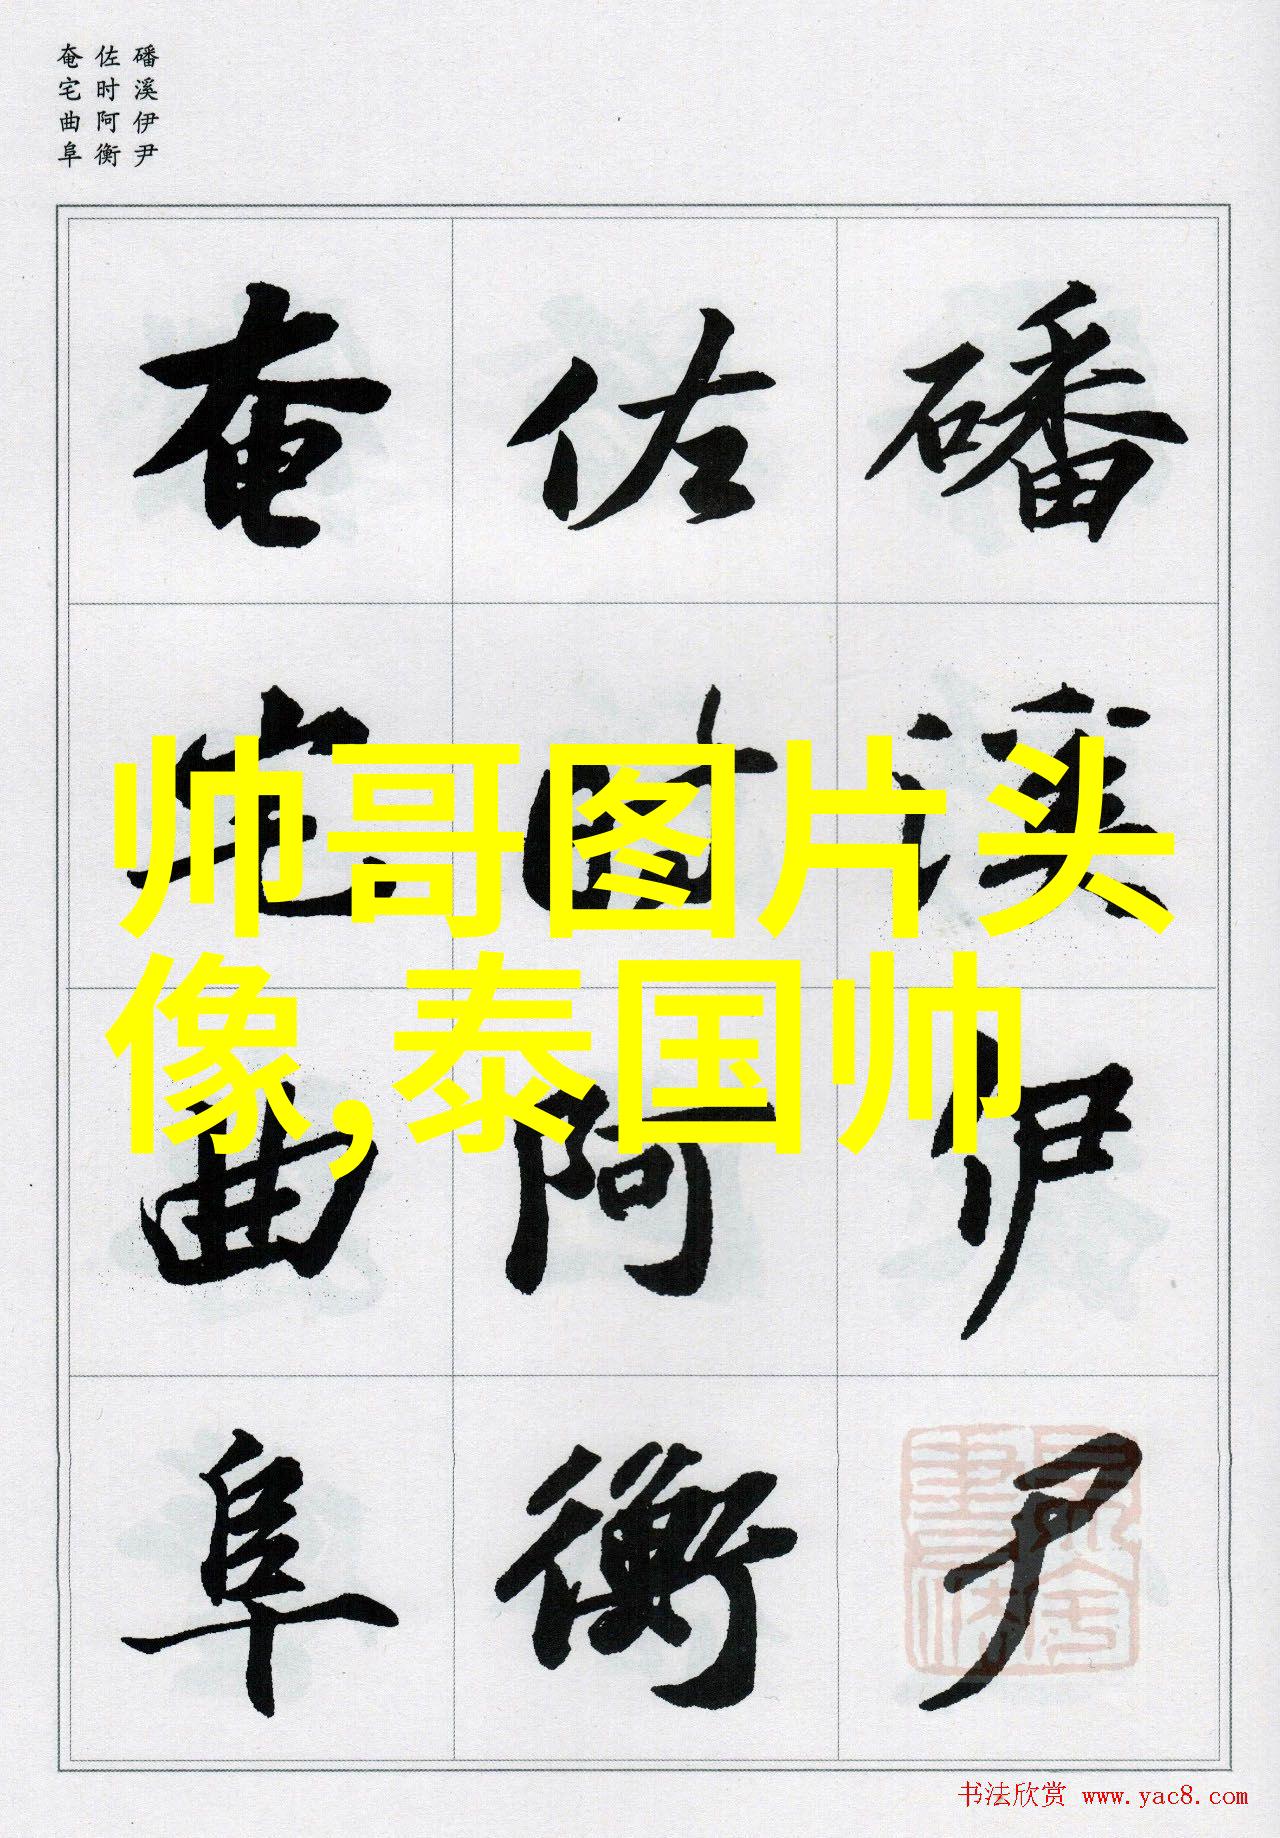 磻溪伊尹
佐时阿衡
奄宅曲阜
磻溪伊尹
佐时阿衡
奄宅曲阜
帅哥图片头
像,泰国帅
书法欣赏 www.yac8.com